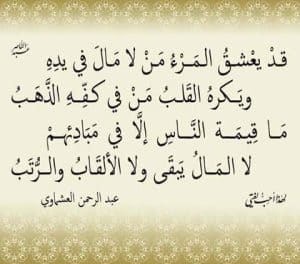 قدْ يعْشقُ المَرْءُ مَنْ لا مالَ في يدِهِ
ويَكرهُ القلبُ مَنْ في كفّهِ الذَّهبُ
مَا قِيمَةُ النَّاسِ إلَّا في مَبَادِئِهمْ
لا المَالُ يَبقَى ولا الألقَابُ والرُّتَبُ
عبد الرحمن العشماوي
لهذا أحببت لغتي